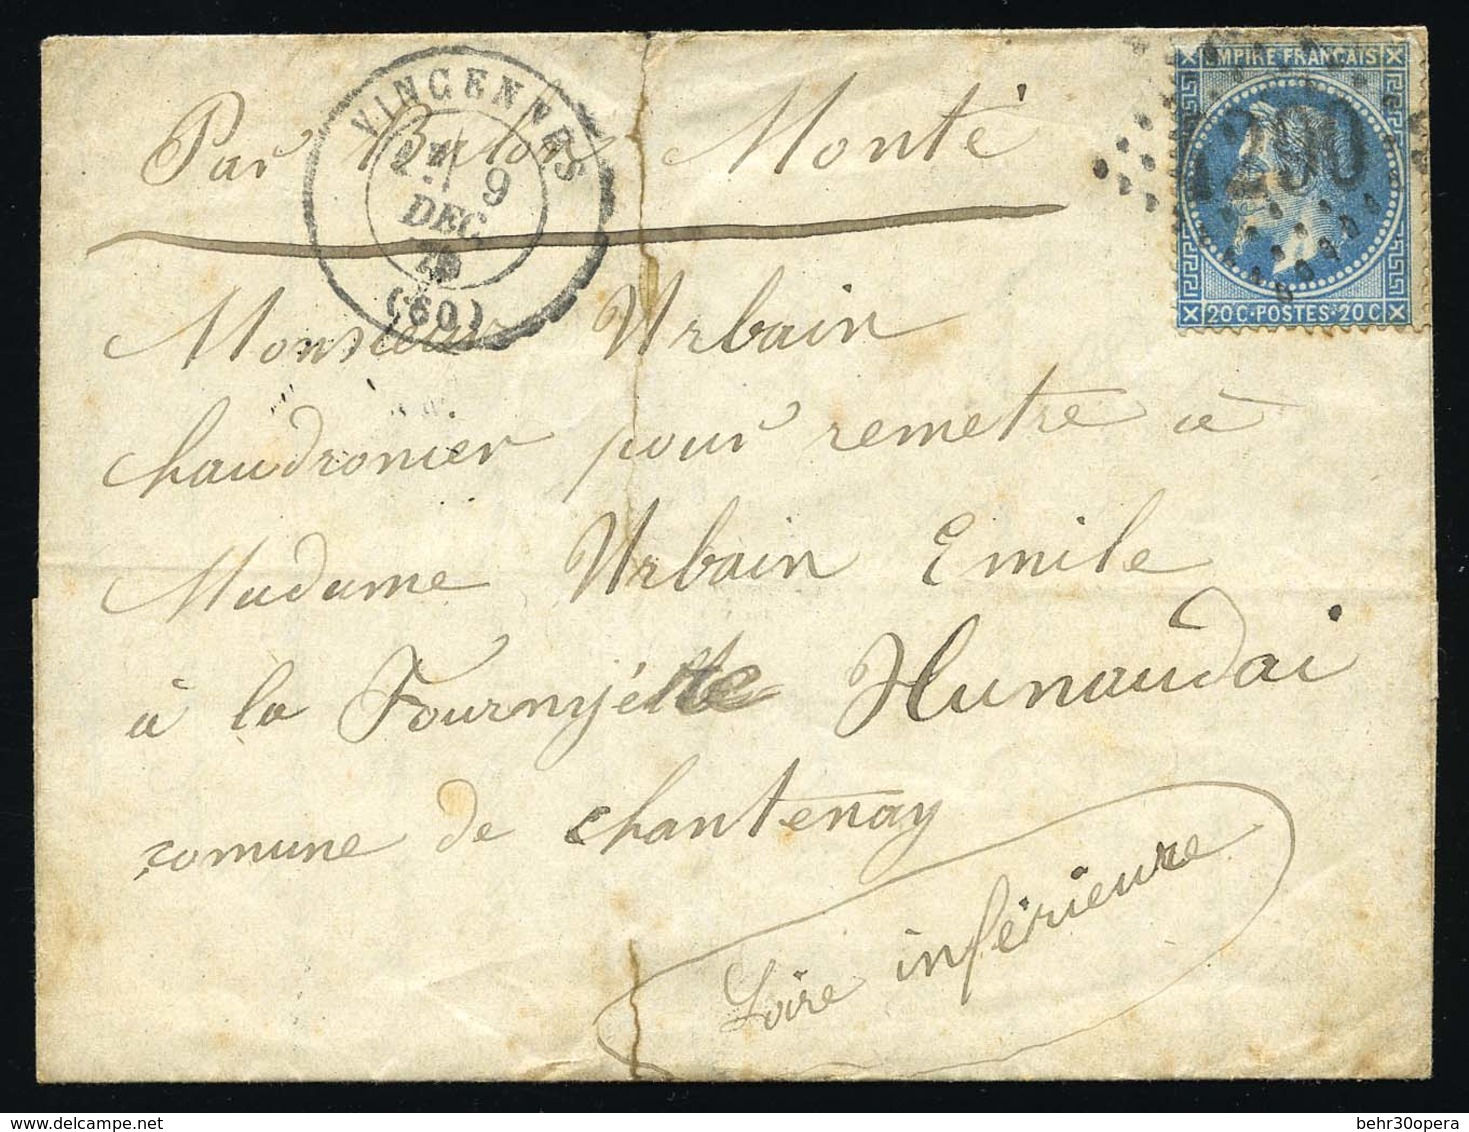 Par Ballon Monté
VINCENNES
9
DEC.
70
(60)
EMPIRE FRANÇAIS
4290
20 C · POSTES · 20 C
Monsieur Urbain
chaudronier pour remetre à
Madame Urbain Emile
à la Fournyéllte Hunaudai
comune de Chantenay
Loire inférieure
delcampe.net
behr30opera